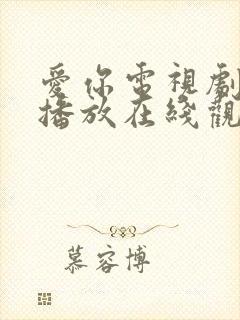 愛你電視劇
播放在綫觀
慕容博